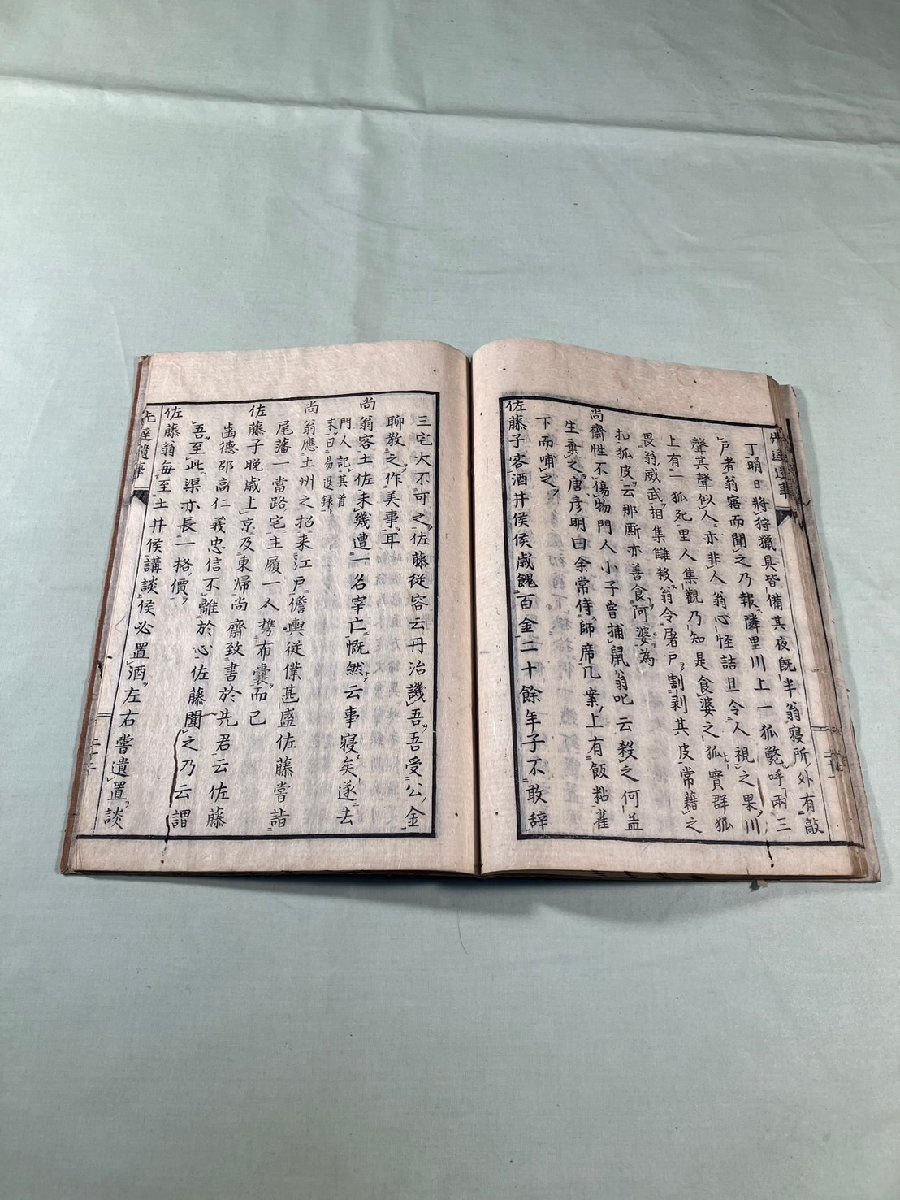 丁明日將狩獵具皆備其夜既半翁寢所外有敲
戸者翁審而聞之乃報隣里川上一狐斃呼兩三
聲其聲似人亦非人翁心怪詰旦令人視之果川
上有一狐死里人集觀乃知是食婆之狐實群狐
畏翁威武相集誰殺翁令屠戸割剥其皮常藉之
扣狐皮云那厮亦善食阿婆為
尚齋性不傷物門人小子曾捕鼠翁叱云殺之何益
生東之唐彦明曰余常侍師席几案上有飯粘雀
下而哺之
佐藤子客酒井侯侯歳餽百金二十餘年子不敢辞
三宅大不可之佐藤從容云丹治譏吾吾受公金
聊散之作美事耳
尚翁客土佐未幾遭一名宰亡慨然云事寢矣遂去
門人記其首
末曰易退録
尚翁應土州之招来江戸儋輿従僕甚盛佐藤嘗詣
尾藩一當路宅主願一人携布嚢而已
佐藤子晩歳上京及東帰尚齋致書於先君云佐藤
齒德卲高仁義忠信不離於心佐藤聞之乃云謂
吾至此渠亦長一格價
佐藤翁每至土井侯講談侯必置酒左右嘗遺置談
先達遺事